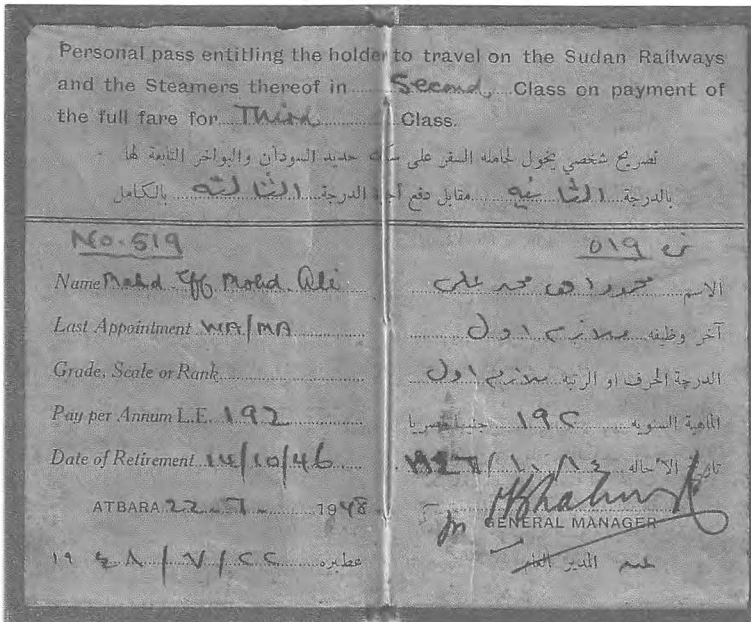 Personal pass entitling the holder to travel on the Sudan Railways
and the Steamers thereof in Second Class on payment of
the full fare for Third Class.
تصريح شخصي يخول لحامله السفر على سكك حديد السودان والبواخر التابعة لها
بالدرجة الثانيه مقابل دفع أجرة الدرجة الثالثه بالكامل
No. 519
Name Mohd Eff Mohd Ali
Last Appointment WA/MA
Grade, Scale or Rank
Pay per Annum L.E. 192
Date of Retirement 14/10/46
ATBARA 22-7- 1948
١٩٤٨/٧/٢٢ عطبره
٥١٩
الاسم محمد علي
آخر وظيفه ملازم اول
الدرجة الحرف او الرتبه ملازم اول
الماهية السنويه ١٩٢ جنيها مصريا
تاريخ الاحاله ١٩٤٦/١٠/١٤
GENERAL MANAGER
المدير العام